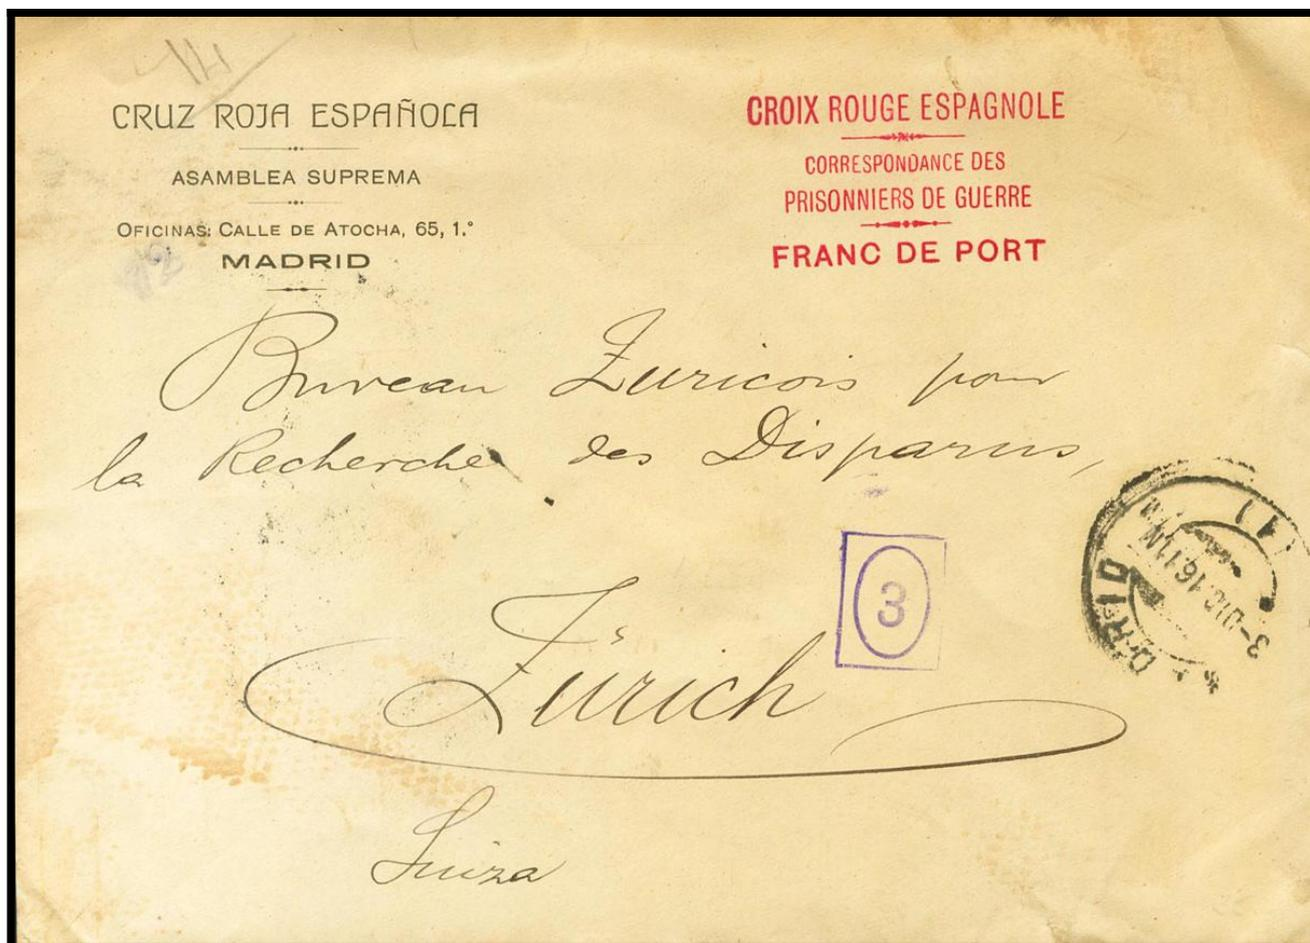 CRUZ ROJA ESPAÑOLA
ASAMBLEA SUPREMA
OFICINAS: CALLE DE ATOCHA, 65, 1.°
MADRID
CROIX ROUGE ESPAGNOLE
CORRESPONDANCE DES
PRISONNIERS DE GUERRE
FRANC DE PORT
Bureau Zuricois pour
la Recherche des Disparus,
3
Zürich
Suiza
3-DIC 16 11N